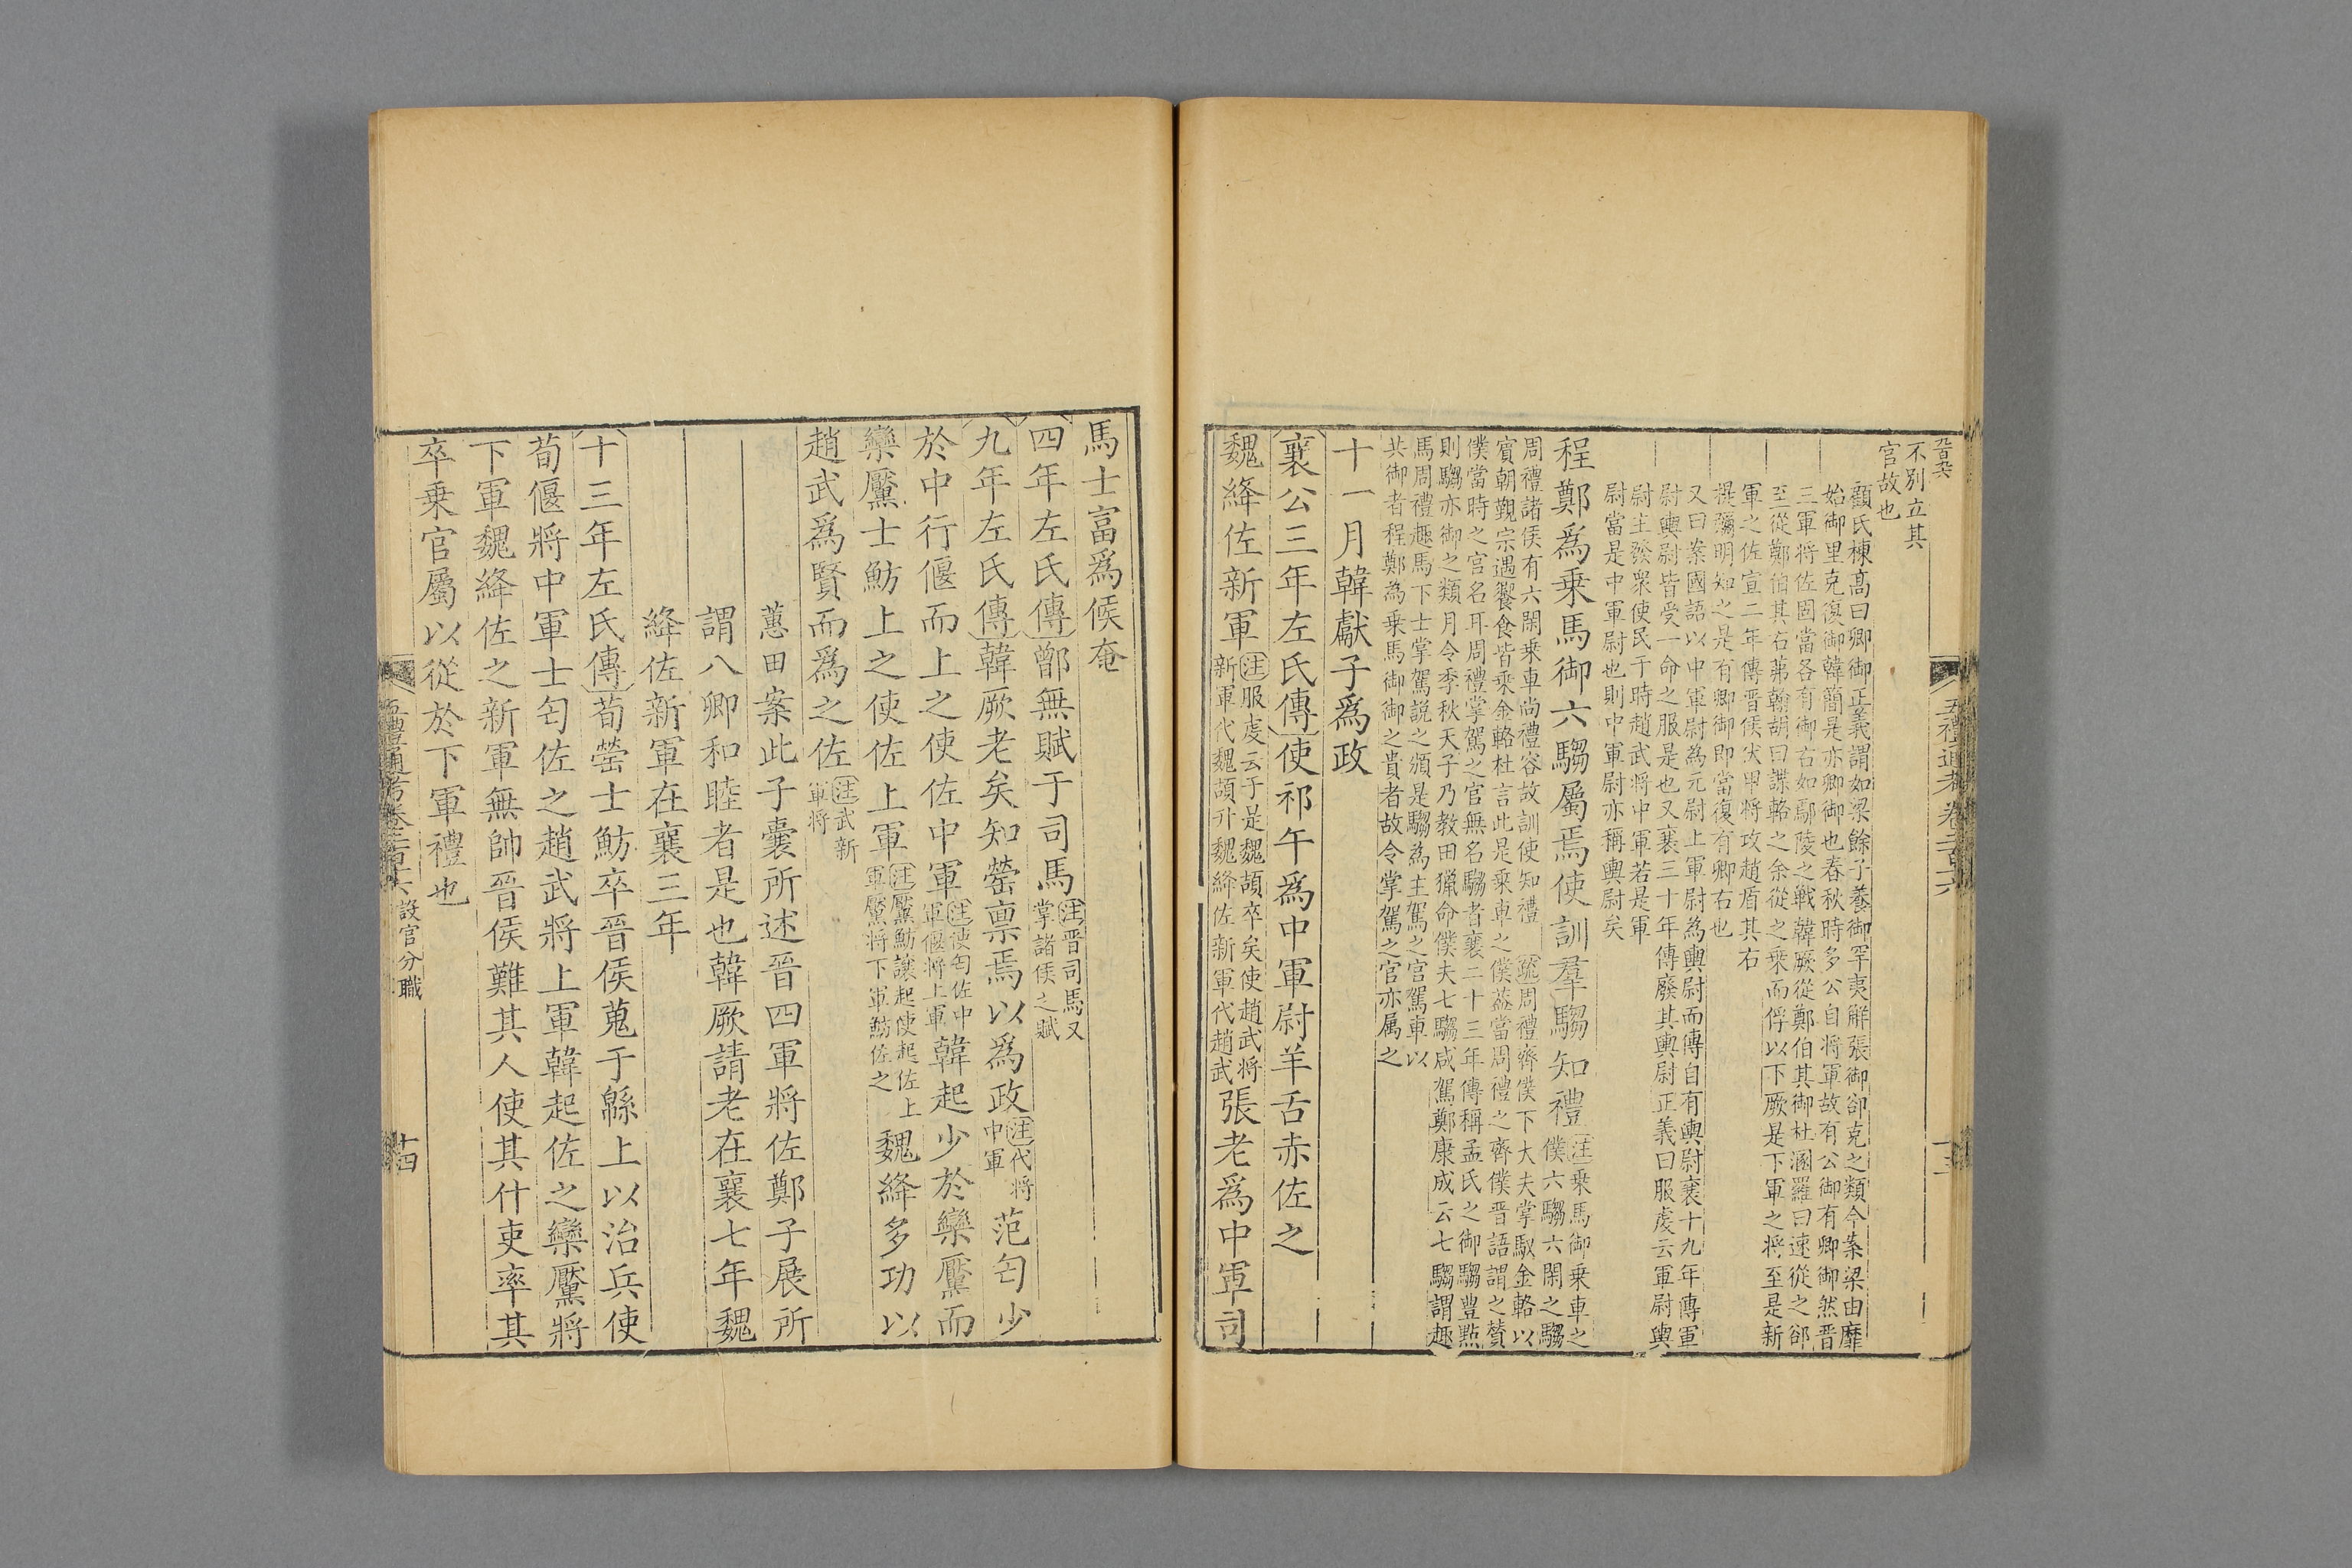 不別立其
官故也
顧氏棟高曰卿御正義謂如梁餘子養御罕夷解張御郤克之類今案梁由靡
始御里克復御韓簡是亦卿御也春秋時多公自將軍故有公御有卿御然晉
三軍將佐固當各有御右如鄢陵之戰韓厥從鄭伯其御杜溷羅曰速從之郤
至從鄭伯其右茀翰胡曰諜輅之余從之乘而俘以下厥是下軍之將至是新
軍之佐宣二年傳晉侯伏甲將攻趙盾其右
提彌明知之是有卿御即當復有卿右也
又曰案國語以中軍尉為元尉上軍尉為輿尉而傳自有輿尉襄十九年傳軍
尉輿尉皆受一命之服是也又襄三十年傳廢其輿尉正義曰服虔云軍尉輿
尉主發衆使民于時趙武將中軍若是軍
尉當是中軍尉也則中軍尉亦稱輿尉矣
程鄭爲乗馬御六騶屬焉使訓羣騶知禮
注乗馬御乗車之
僕六騶六閑之騶
周禮諸侯有六閑乗車尚禮容故訓使知禮
疏周禮齊僕下大夫掌馭金輅以
賓朝觀宗遇饗食皆乘金輅杜言此是乘車之僕葢當周禮之齊僕晉語謂之贊
僕當時之官名耳周禮掌駕之官無名騶者襄二十三年傳稱孟氏之御騶豐㸃
則騶亦御之類月令季秋天子乃教田獵命僕夫七騶咸駕鄭康成云七騶謂趣
馬周禮趣馬下士掌駕説之頒是騶為主駕之官駕車以
共御者程鄭為乗馬御御之貴者故令掌駕之官亦屬之
十一月韓獻子爲政
襄公三年左氏傳使祁午爲中軍尉羊舌赤佐之
魏絳佐新軍
注服虔云于是魏頡卒矣使趙武將
新軍代魏頡升魏絳佐新軍代趙武
張老爲中軍司
五禮通考卷二百三十六
十三
馬士富爲候奄
四年左氏傳鄫無賦于司馬
注晉司馬又
掌諸侯之賦
九年左氏傳韓厥老矣知罃禀焉以爲政
注代將
中軍
范匄少
於中行偃而上之使佐中軍
注使匄佐中
軍偃將上軍
韓起少於欒黶而
欒黶士魴上之使佐上軍
注黶魴讓起使起佐上
軍黶將下軍魴佐之
魏絳多功以
趙武爲賢而爲之佐
注武新
軍將
蕙田案此子囊所述晉四軍將佐鄭子展所
謂八卿和睦者是也韓厥請老在襄七年魏
絳佐新軍在襄三年
十三年左氏傳荀罃士魴卒晉侯蒐于緜上以治兵使
荀偃將中軍士匄佐之趙武將上軍韓起佐之欒黶將
下軍魏絳佐之新軍無帥晉侯難其人使其什吏率其
卒乗官屬以從於下軍禮也
五禮通考卷二百三十六 設官分職
十四